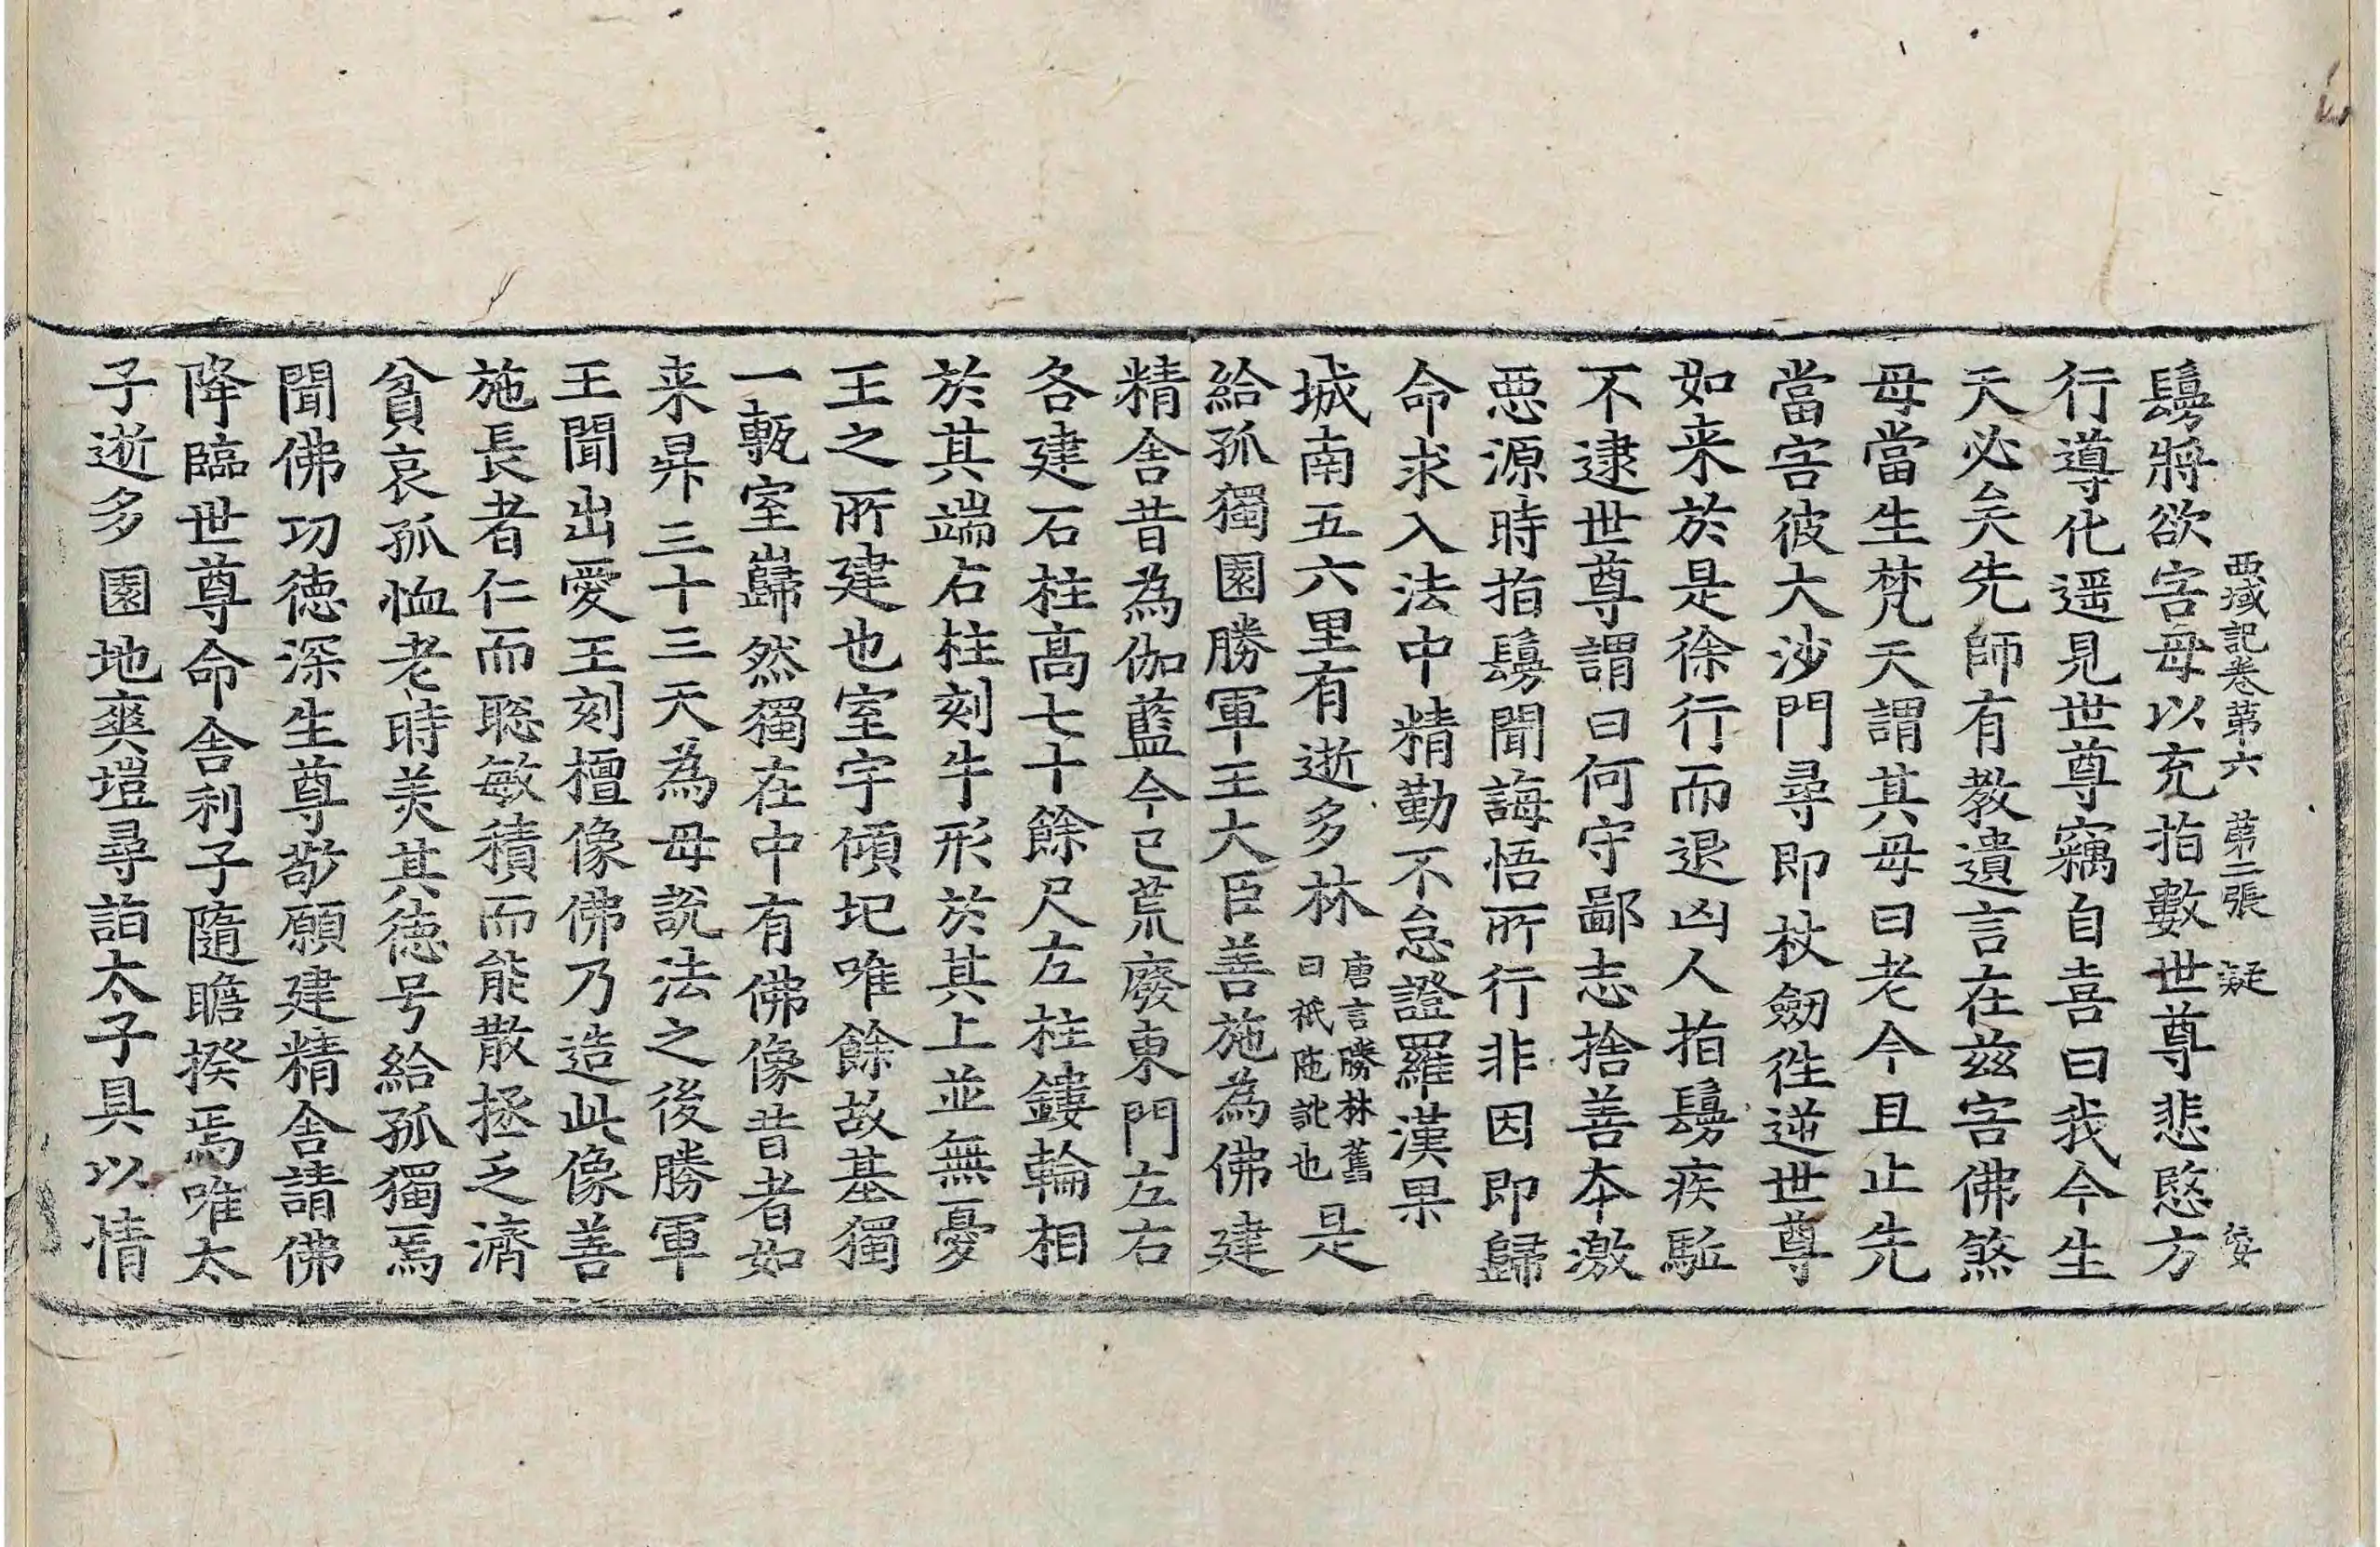 西域記卷第六 第二張 疑
鬘將欲害母以充指數世尊悲愍方
行導化遥見世尊竊自喜曰我今生
天必矣先師有教遺言在兹害佛煞
母當生梵天謂其母曰老今且止先
當害彼大沙門尋即杖劒徃逆世尊
如来於是徐行而退凶人指鬘疾駈
不逮世尊謂曰何守鄙志捨善夲激
惡源時指鬘聞誨悟所行非因即歸
命求入法中精勤不怠證羅漢果
城南五六里有逝多林唐言勝林舊曰祇陁訛也是
給孤獨園勝軍王大臣善施為佛建
精舎昔為伽藍今已荒廢東門左右
各建石柱高七十餘尺左柱鏤輪相
於其端右柱刻牛形於其上並無憂
王之所建也室宇傾圮唯餘故基獨
一甎室巋然獨在中有佛像昔者如
来昇三十三天為母說法之後勝軍
王聞出愛王刻檀像佛乃造此像善
施長者仁而聡敏積而能散拯乏濟
貧哀孤恤老時美其德号給孤獨焉
聞佛功德深生尊敬願建精舎請佛
降臨世尊命舎利子隨瞻揆焉唯太
子逝多園地爽塏尋詣太子具以情